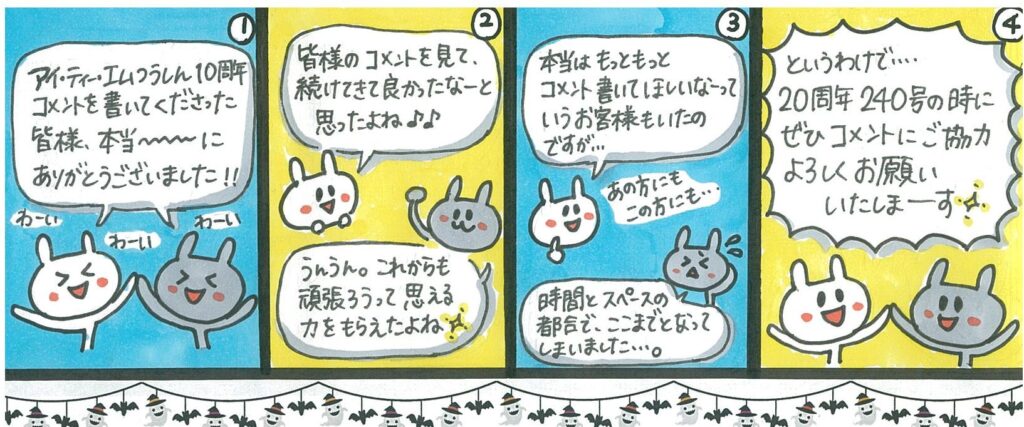 ①
アイ・ティー・エムつうしん10周年
コメントを書いてくださった
皆様、本当〜〜〜〜に
ありがとうございました!!
わーい
わーい
わーい
②
皆様のコメントを見て、
続けてきて良かったなーと
思ったよね♪♪
うんうん。これからも
頑張ろうって思える
力をもらえたよね
③
本当はもっともっと
コメント書いてほしいなーって
いうお客様もいたの
ですが…
あの方にも
この方にも…
時間とスペースの
都合で、ここまでとなって
しまいました…。
④
というわけで‥‥
20周年240号の時に
ぜひコメントにご協力
よろしくお願い
いたしまーす